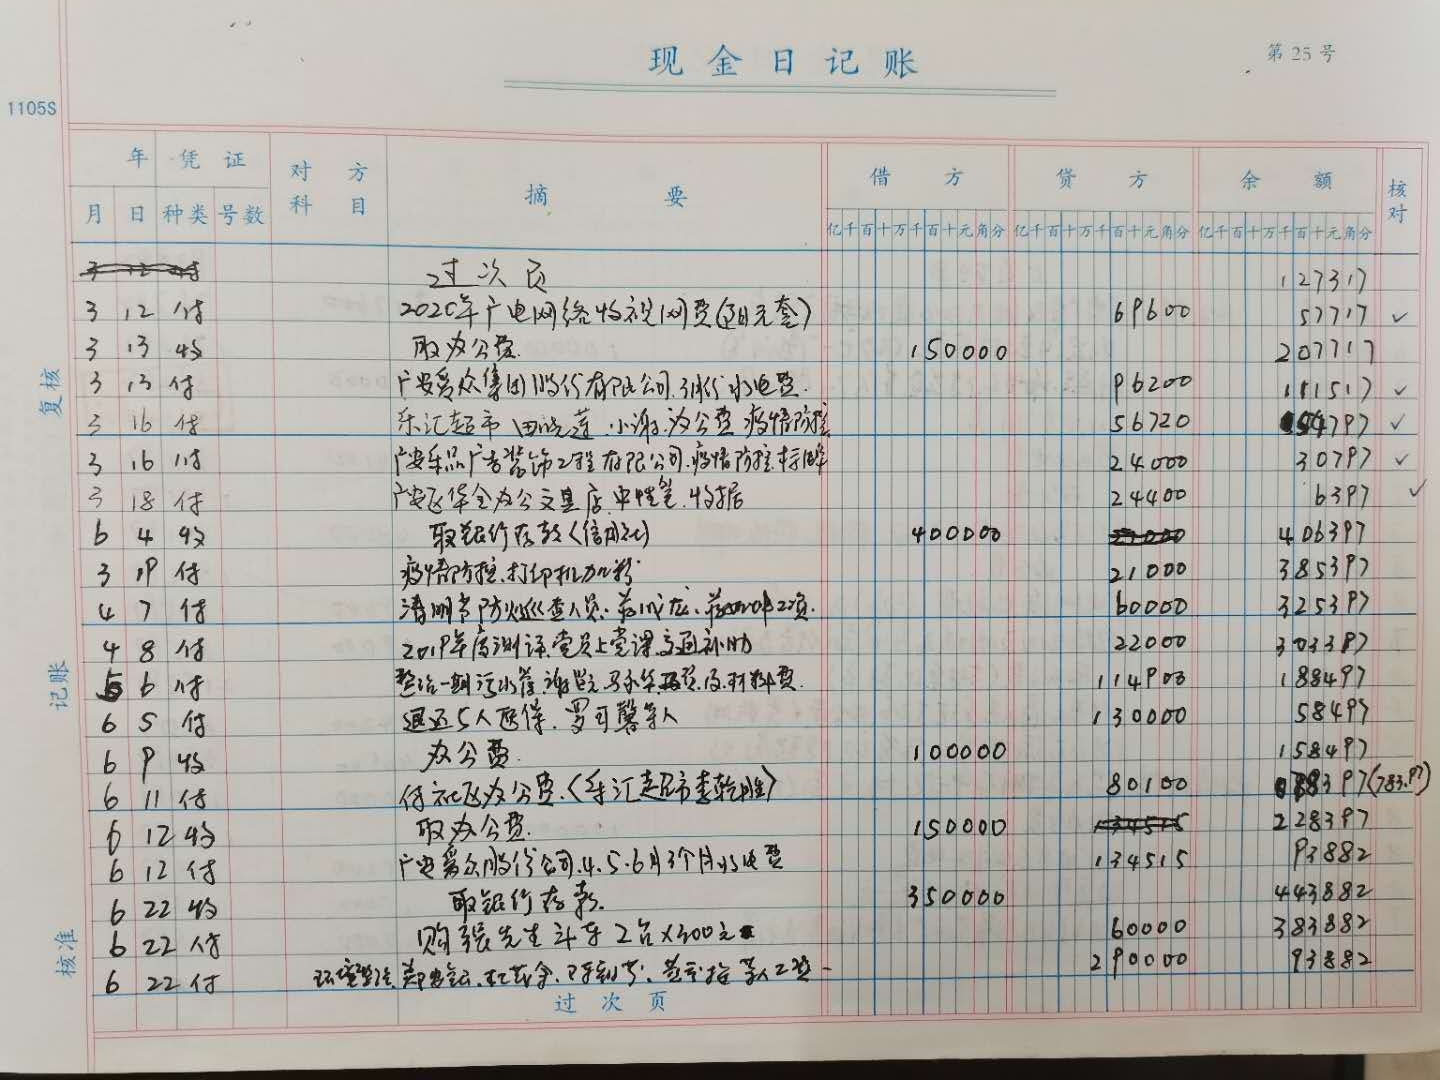 现金日记账
第 25 号
1105S
年 凭证 对方科目 摘要 借方 贷方 余额 核对
月 日 种类 号数 亿千百十万千百十元角分 亿千百十万千百十元角分 亿千百十万千百十元角分
过次页 127317
3 12 付 2020年广电网络收视网费 69600 57717 ✓
3 13 收 取办公费. 150000 207717
3 13 付 广安爱众集团股份有限公司 水电费. 96200 111517 ✓
3 16 付 乐汇超市 田晓莲.小谢.办公费 疫情防控 56720 54797 ✓
3 16 付 广安 品广告装饰工程有限公司.疫情防控. 24000 30797 ✓
3 18 付 广安区华全办公文具店.中性笔.收据 24400 6397 ✓
6 4 收 取银行存款(信用社) 400000 406397
3 19 付 疫情防控.打印机加粉 21000 385397
4 7 付 清明节防火巡查人员. 60000 325397
4 8 付 2019年度测评.党员上党课交通补助 22000 303397
5 6 付 整治一期污水管. 材料费. 114900 188497
6 5 付 退还5人医保.罗可馨等人 130000 58497
6 9 收 办公费. 100000 158497
6 11 付 付社区办公费.(乐汇超市李乾胜) 80100 78397(783.97)
6 12 收 取办公费. 150000 228397
6 12 付 广安爱众股份公司.4.5.6月3个月水电费 134515 93882
6 22 收 取银行存款. 350000 443882
6 22 付 购 先生斗车2台×300元 60000 383882
6 22 付 环境整治. 等人工资 290000 93882
过次页
复核
记账
核准